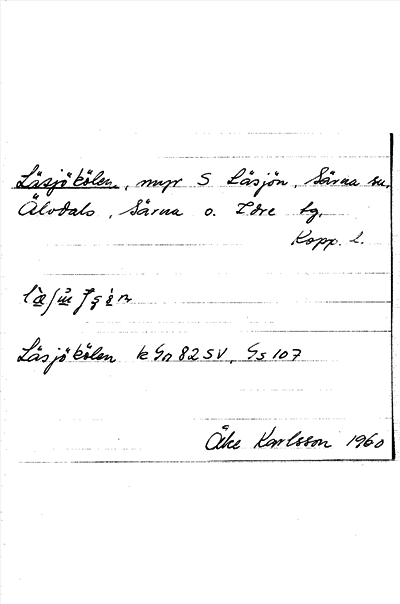 Läsjökölen, myr S Läsjön, Särna sn,
Älvdals, Särna o. Idre tg,
Kopp. l.
Läsjökölen k Gn 82 SV, Gs 107
Åke Karlsson 1960